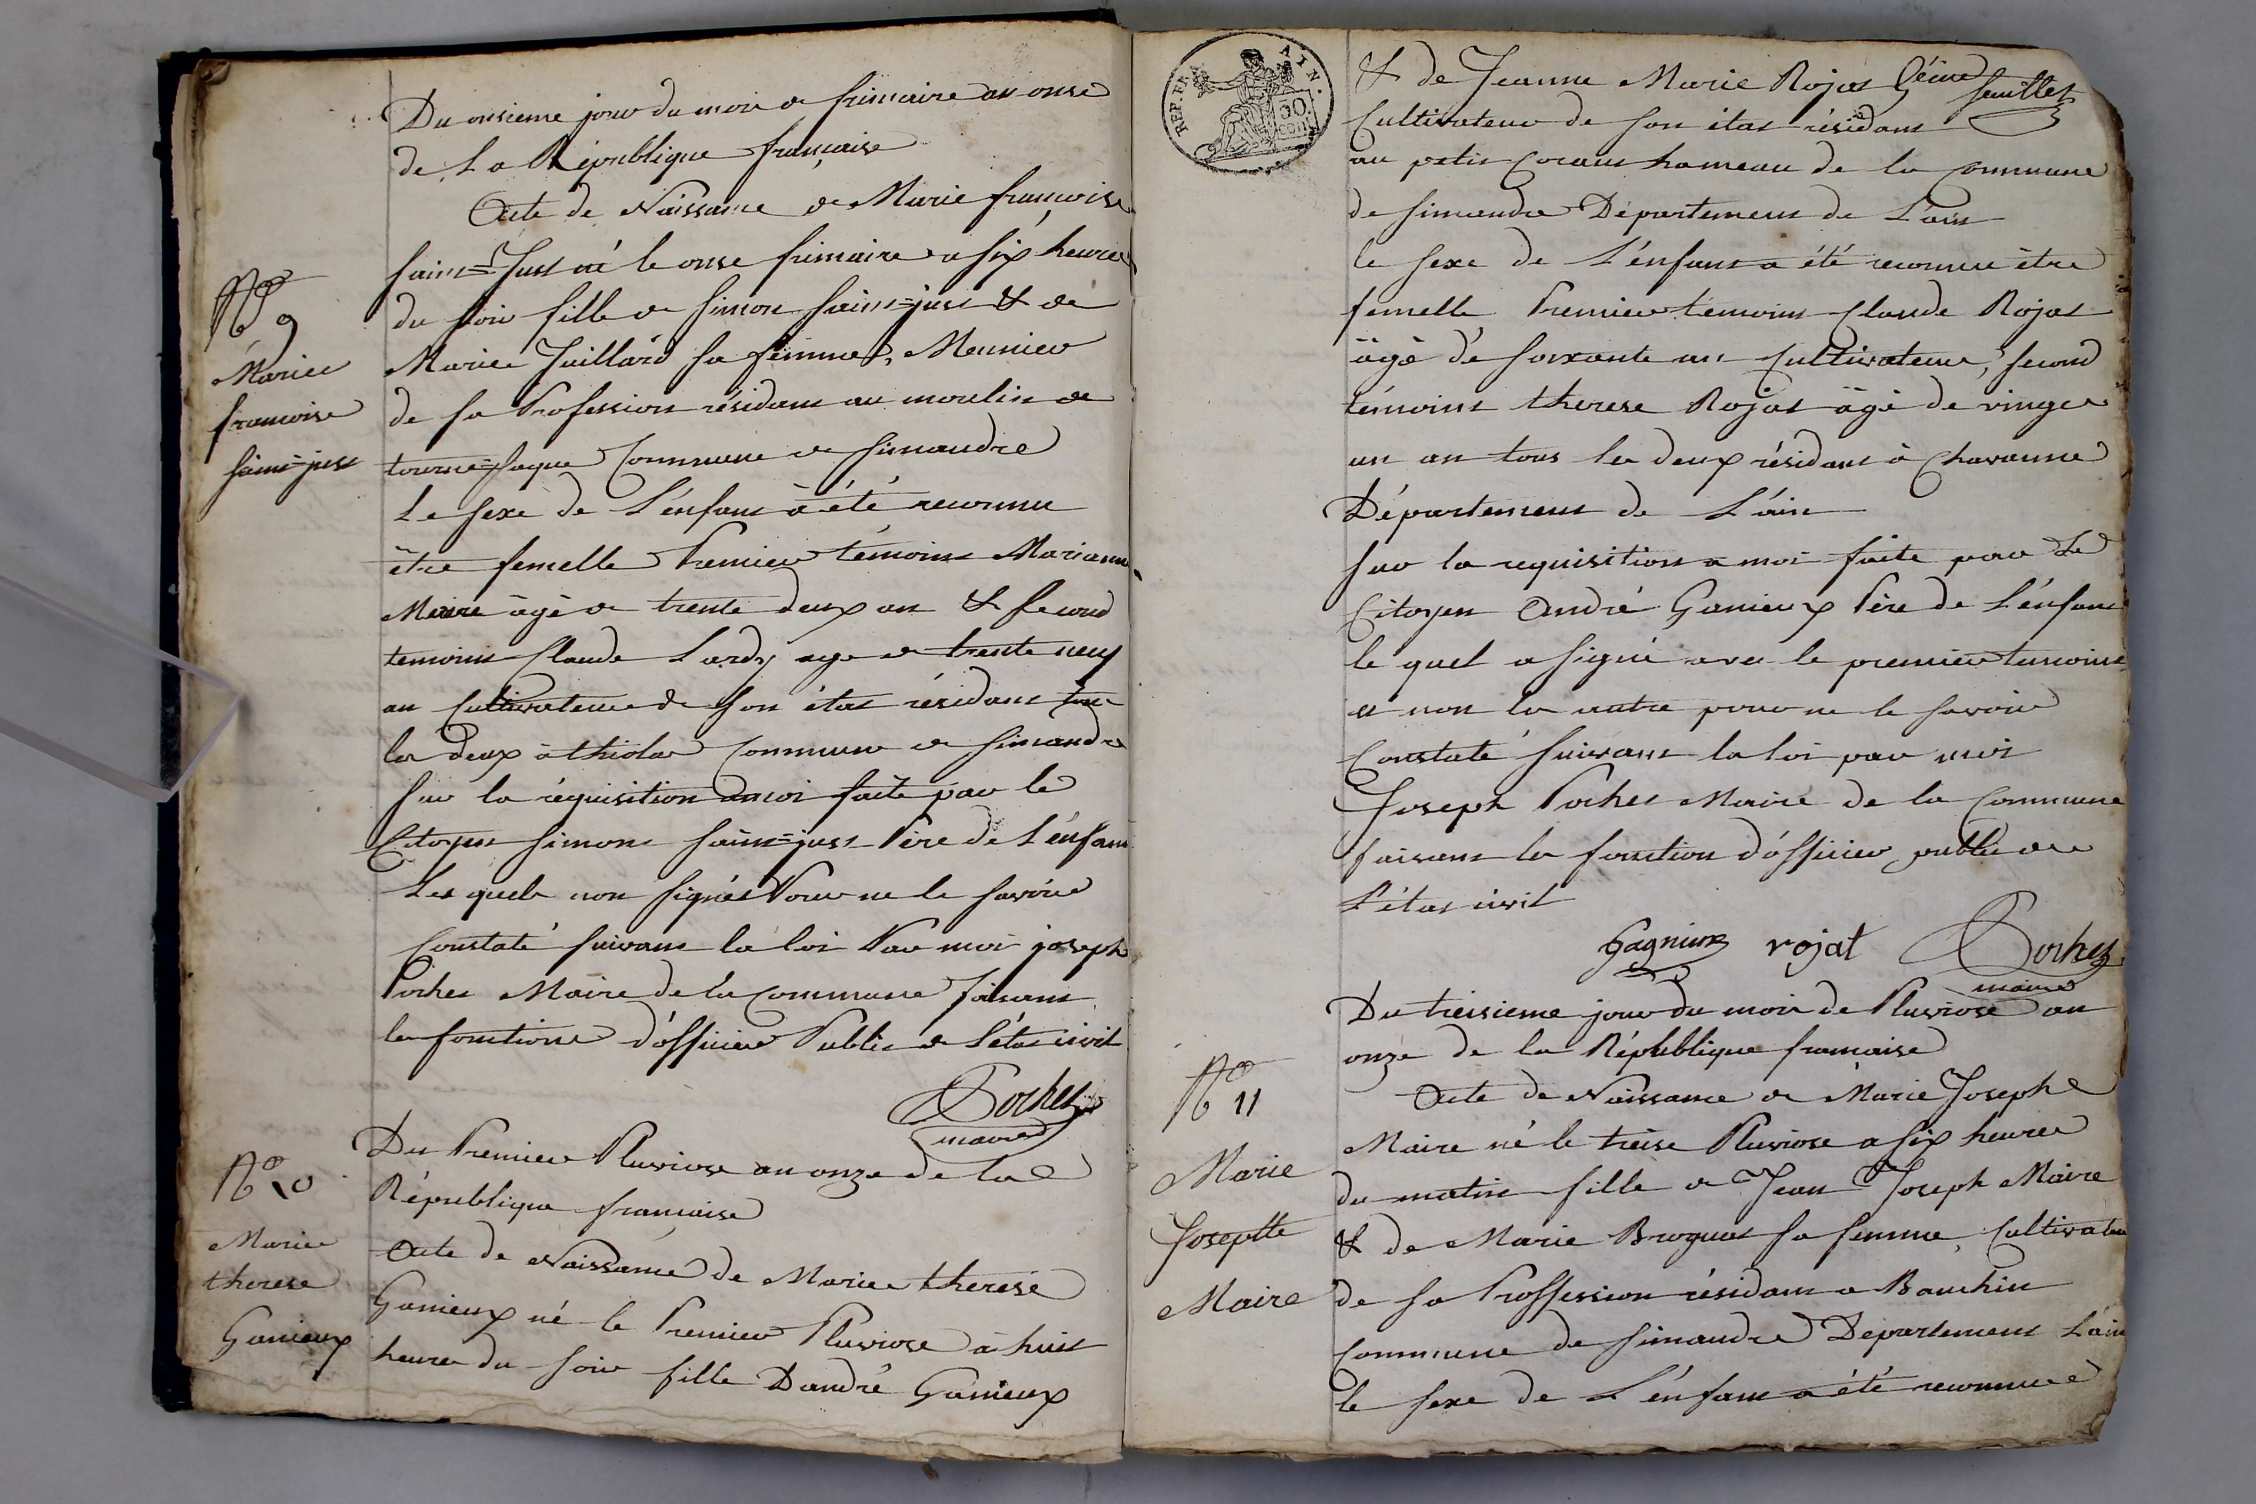 Du onsieme jour du mois de frimaire an onse
de La République française
Acte de Naissance de Marie françoise
saint=Just né le onse frimaire a six heures
du soir fille de Simon saint=just & de
Marie Juillard sa femme, Meunier
de sa Profession résidant au moulin de
tourne=saque Commune de Simandre
Le sexe de L'énfant à été reconnu
être femelle Premier témoins Marianne
Maire âgé de trente deux an & second
temoins Claude Lardy age de trente neuf
an Cultivateur de son état résidant tous
les deux à thiolas Commune de Simandre
sur la réquisition amoi faite par le
Citoyen Simons saint=just Père de L'énfant
Les quels non signés Pour ne le savoir
Constaté suivant la loi Par moi joseph
Pochet Maire de la Commune faisant
les fonctions d'officier Public de L'état civil
Pochet
maire
No 9
Marie
francoise
saint=just
Du Premier Pluviose an onze de la
République francaise
Acte de Naissance de Marie therese
Ganieux né le Premier Pluviose à huit
heures du soir fille Dandré Ganieux
No 10
Marie
therese
Ganieux
REP. FRA. AIN.
50
cent
feuillet
& de Jeanne Marie Rojat
Cultivateur de son état résidant
au petit Corant hameau de la Commune
de Simandre Département de L'ain
le sexe de L'énfant a été reconnu être
femelle Premier temoins Claude Rojat
âgé de soixante an Cultivateur, second
témoins therese Rojat âgé de vingt
un an tous les deux résidant à Chavanne
Département de L'ain
sur la requisition a moi faite par Le
Citoyen André Ganieux Père de L'énfant
le quel a signé avec le premier temoins
et non les autre pour ne le savoir
Constaté suivant la loi par moi
Joseph Pochet Maire de la Commune
faisant les fonction d'officier public de
L'état civil
Gagnieux rojat Pochet
maire
Du treisieme jour du mois de Pluviose an
onze de la République francaise
Acte de Naissance de Marie Joseph
Maire né le treise Pluviose a six heures
du matin fille de Jean Joseph Maire
& de Marie Broguat sa femme, Cultivateur
de sa Proffession résidant a Bauchin
Commune de Simandre Département L'ain
le sexe de L'énfant a été reconnue
No 11
Marie
Josephte
Maire